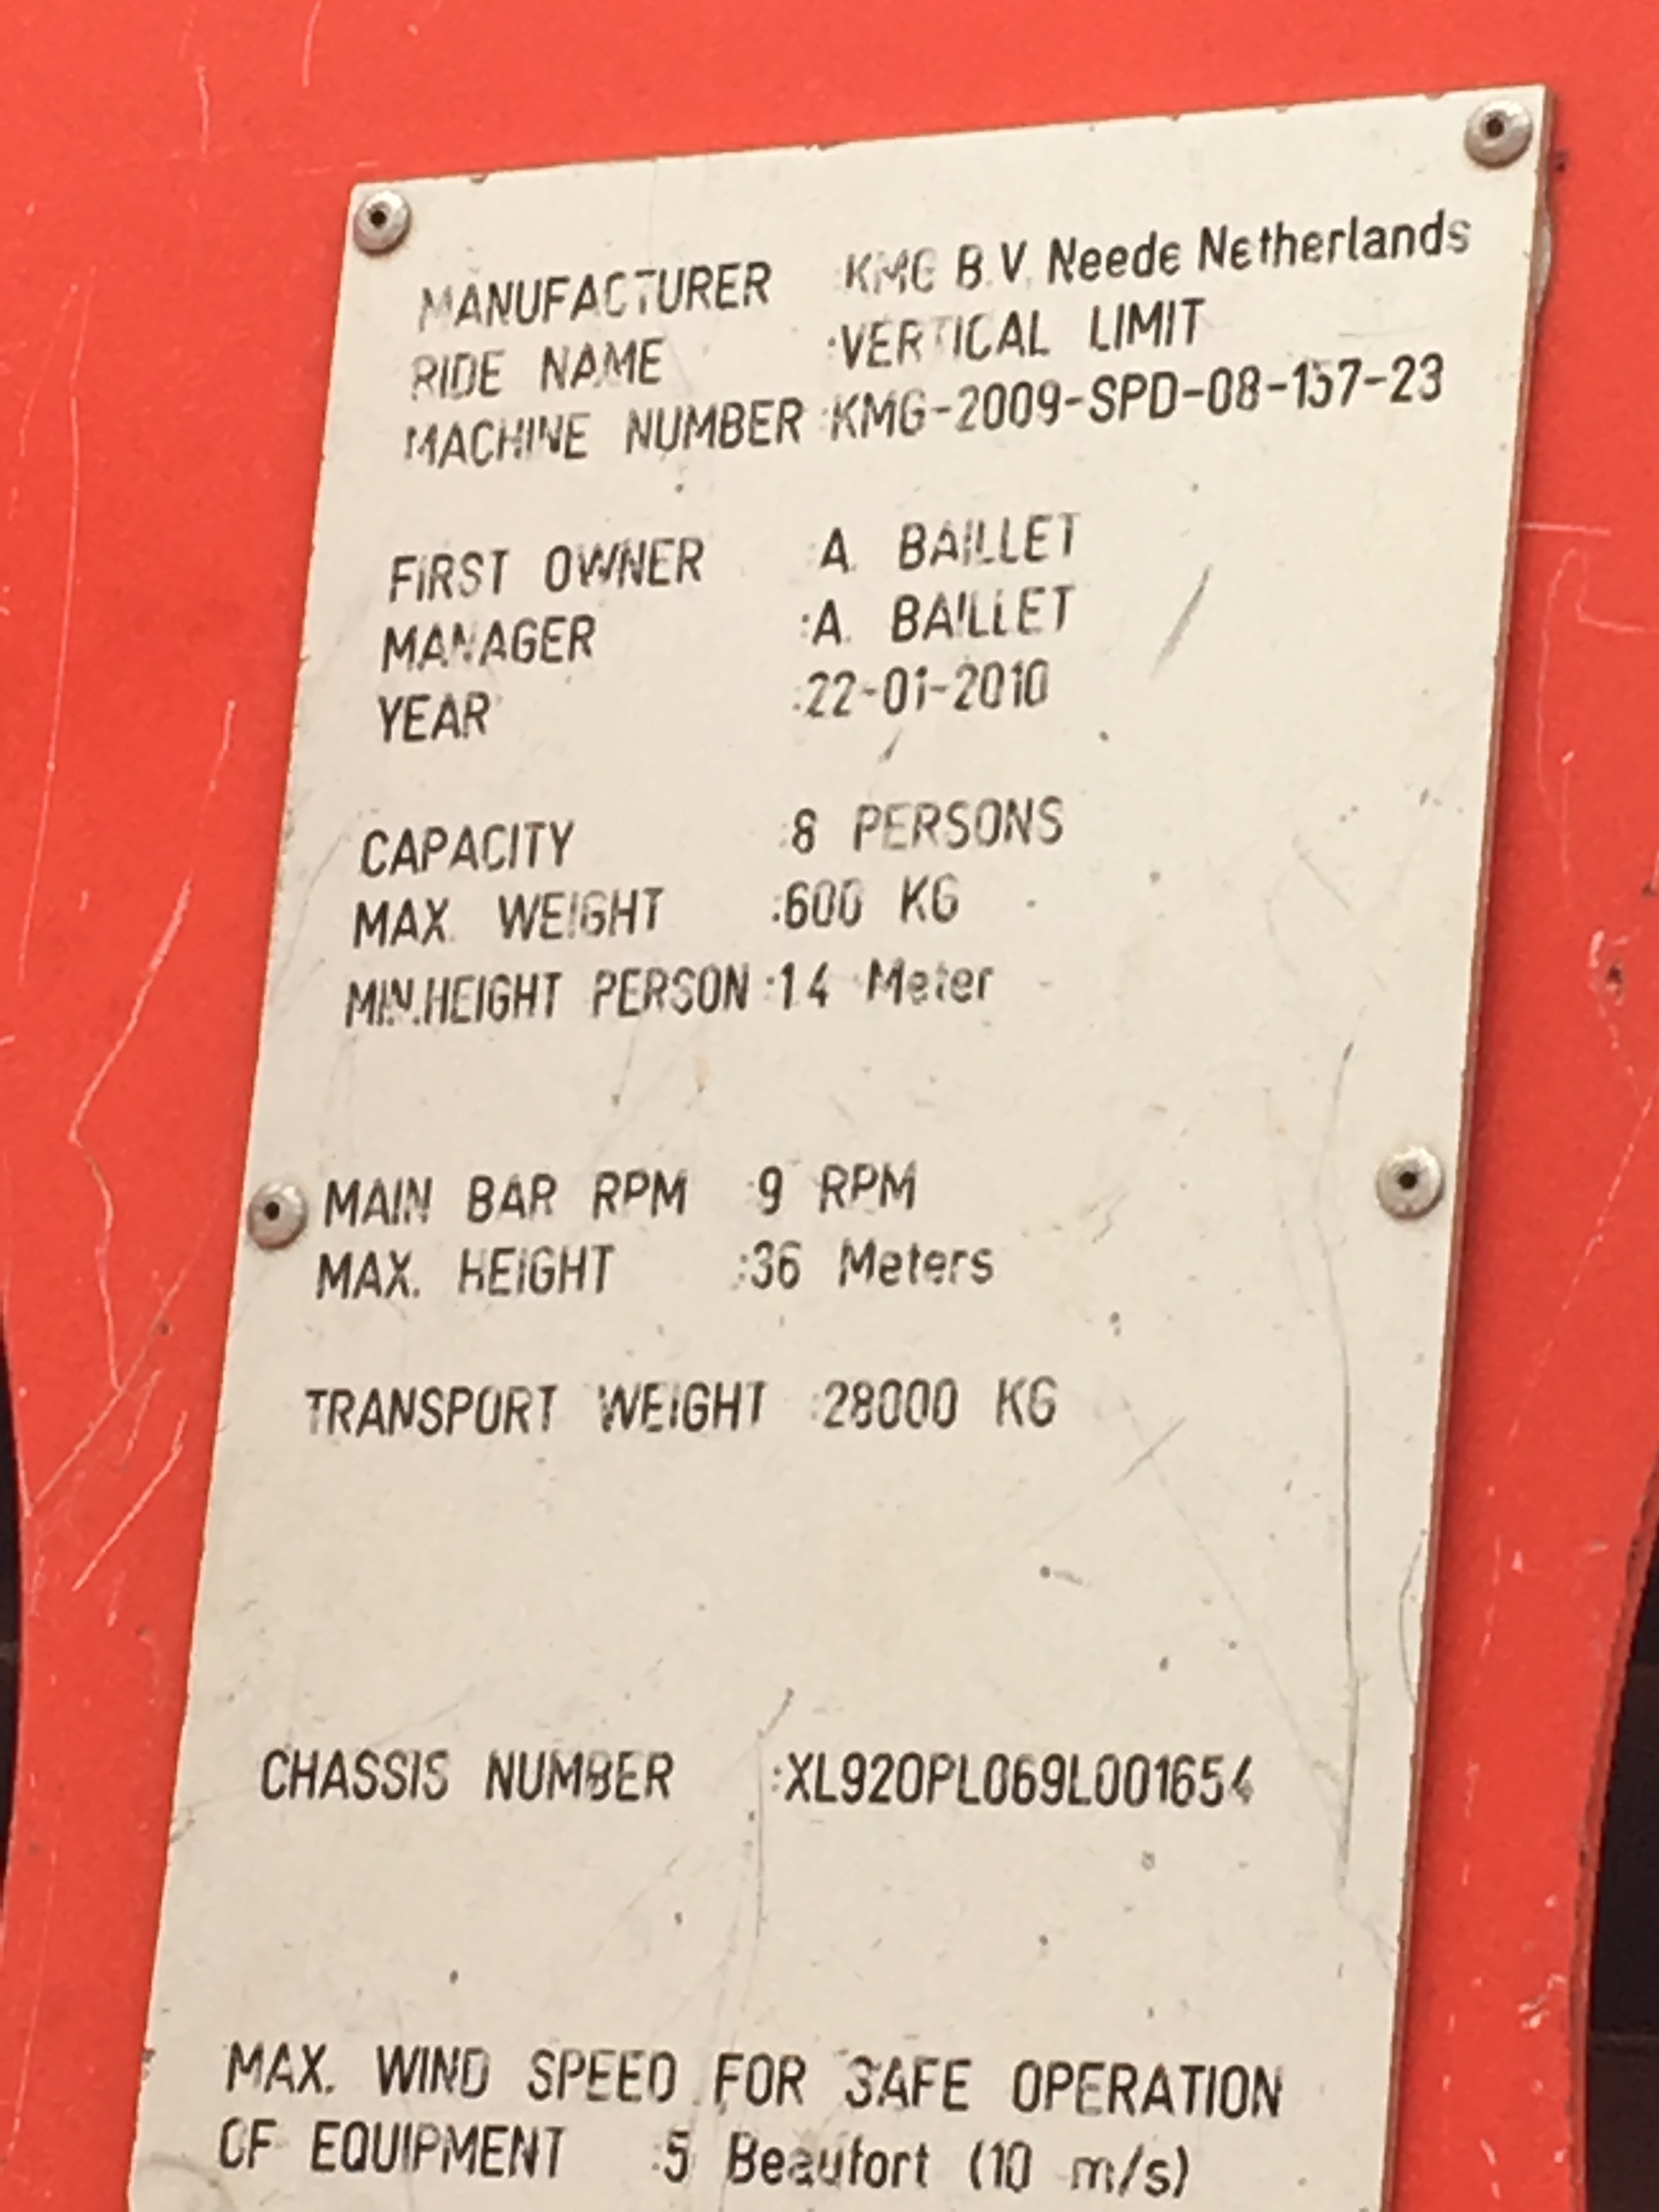 MANUFACTURER :KMG B.V. Neede Netherlands
RIDE NAME :VERTICAL LIMIT
MACHINE NUMBER :KMG-2009-SPD-08-157-23
FIRST OWNER :A. BAILLET
MANAGER :A. BAILLET
YEAR :22-01-2010
CAPACITY :8 PERSONS
MAX. WEIGHT :600 KG
MIN.HEIGHT PERSON :1.4 Meter
MAIN BAR RPM :9 RPM
MAX. HEIGHT :36 Meters
TRANSPORT WEIGHT :28000 KG
CHASSIS NUMBER :XL920PL069L001654
MAX. WIND SPEED FOR SAFE OPERATION
OF EQUIPMENT :5 Beaufort (10 m/s)